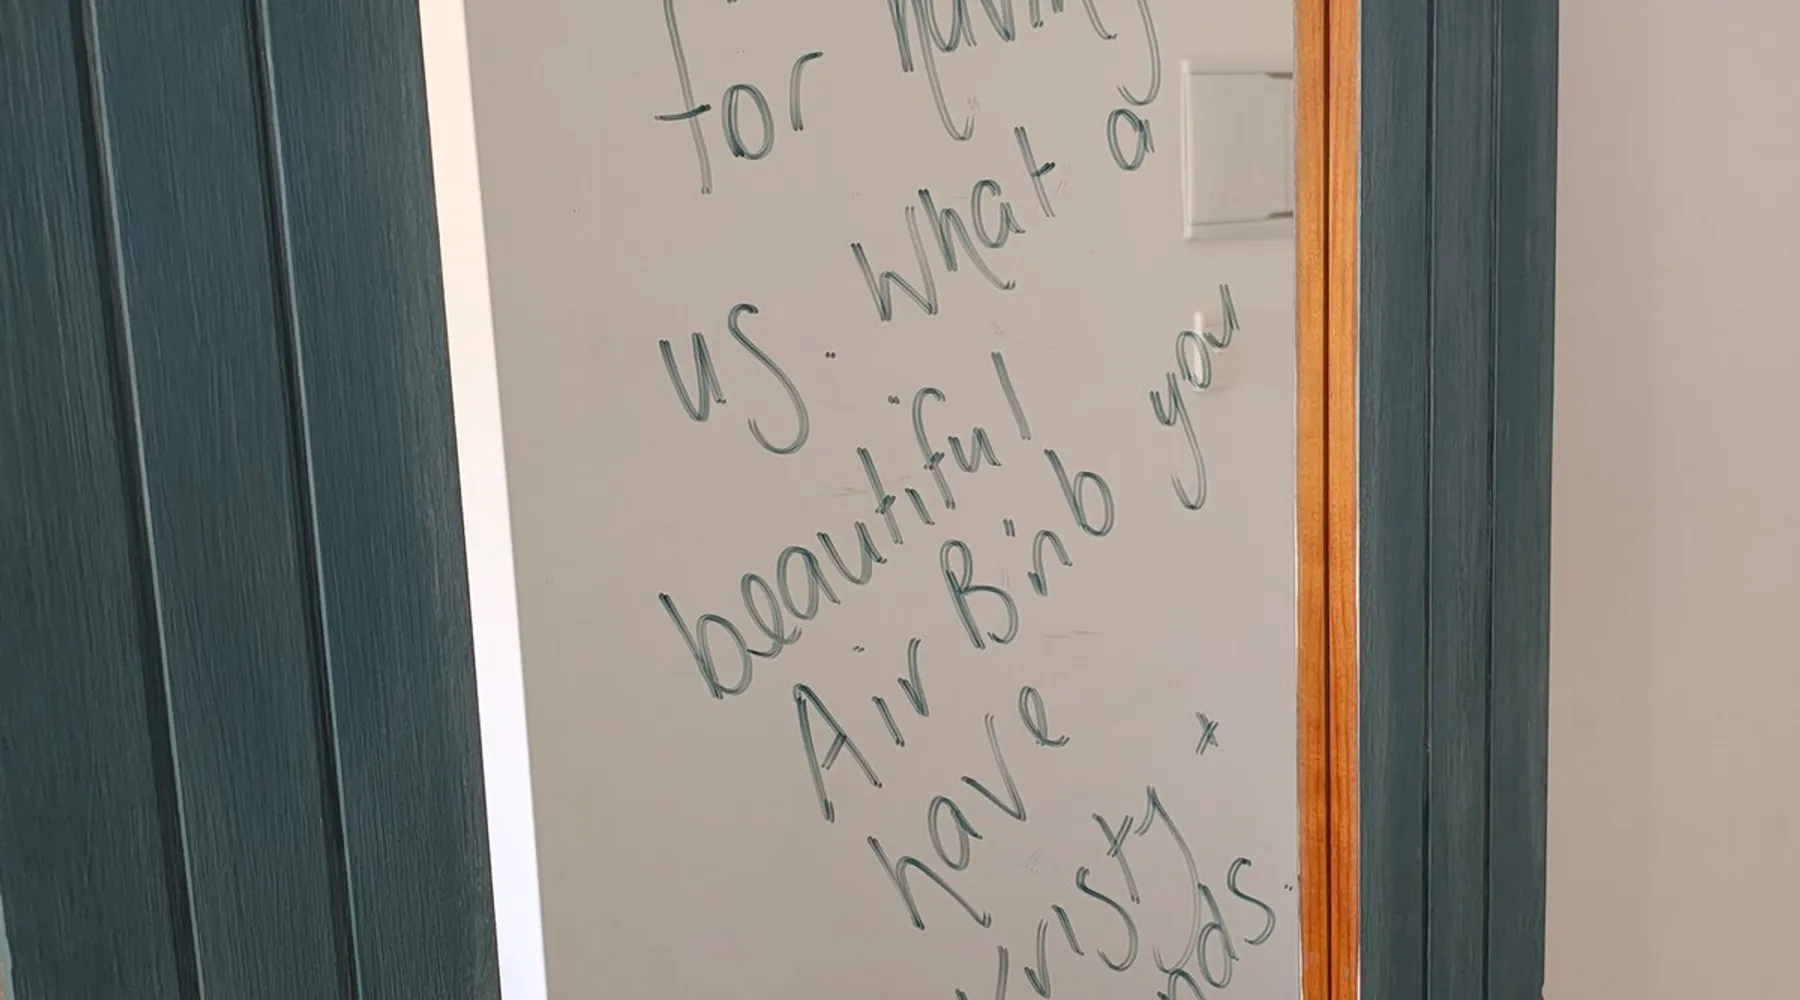 for having
us. What a
beautiful
Air Bnb you
have
Kristy +